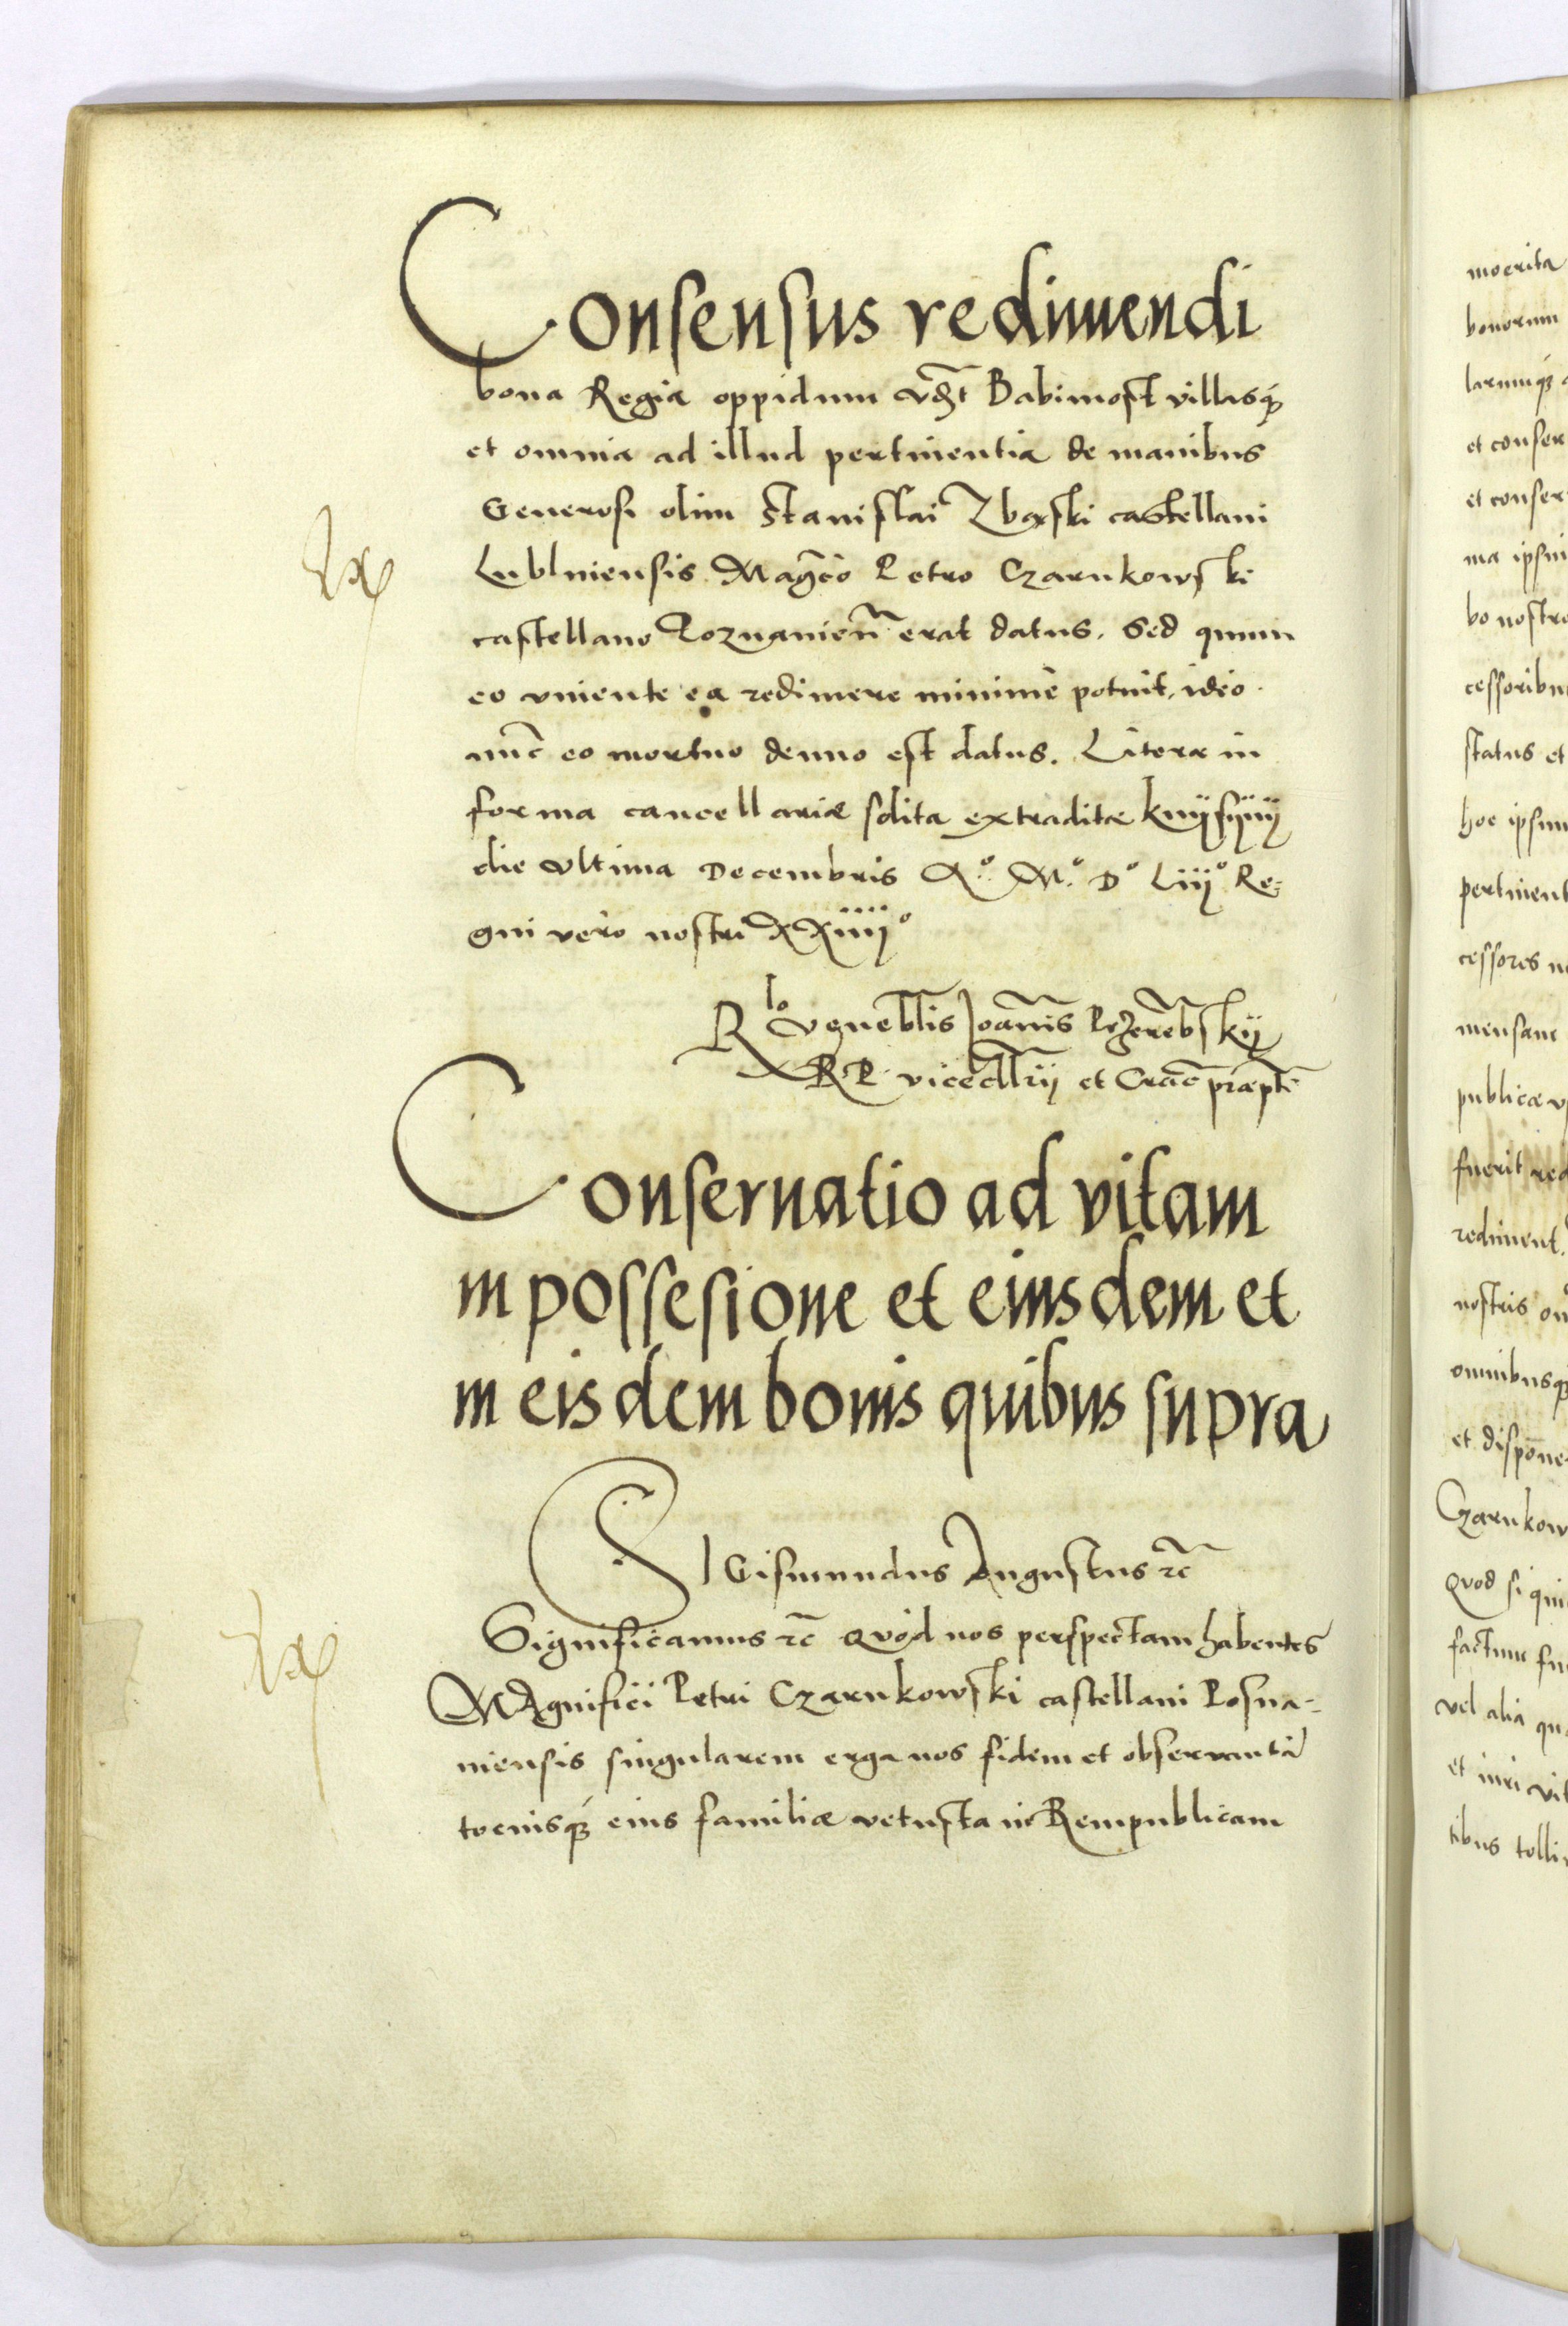 Consensus redimendi
bona Regia oppidum vdʒt Babimost villasqʒ
et omnia ad illud pertinentia de manibus
Generosi olim Stanislai Zbąski castellani
Lublniensis Magc̃o Petro Czarnkowski
castellano Poznanien̄ erat datus. Sed quum
eo viuente ea redimere minimè potuit, ideo
nūc eo mortuo denuo est datus. Literæ in
forma cancellariæ solita extraditæ knÿsÿnÿ
die vltima Decembris Aº. Mº. Dº Liijº Re-
gni vero nostri XXiiijº
Rlo Veneblis Joannis
R. P. vicecllrij et
Conseruatio ad vitam
in possesione et eiusdem et
in eisdem bonis quibus supra
SIGismundus Augustus rc̄
Significamus rc̄ Quod nos perspectam habentes
Magnifici Petri Czarnkowski castellani Posna-
niensis singularem erga nos fidem et obseruantiā
tociusqʒ eius familiæ vetusta in Rempublicam
moerita
bonorum
larumqʒ
et conser
et conser
ma ipsiu
bo nostro
cessoribu
status et
hoc ipsum
pertinent
cessores
mensare
publicæ
fuerit red
rediment.
nostris
omnibusqʒ
et dispone
Czarnkow
Quod si qui
factum fu
vel alia qu
et iuri vit
tibus tolli